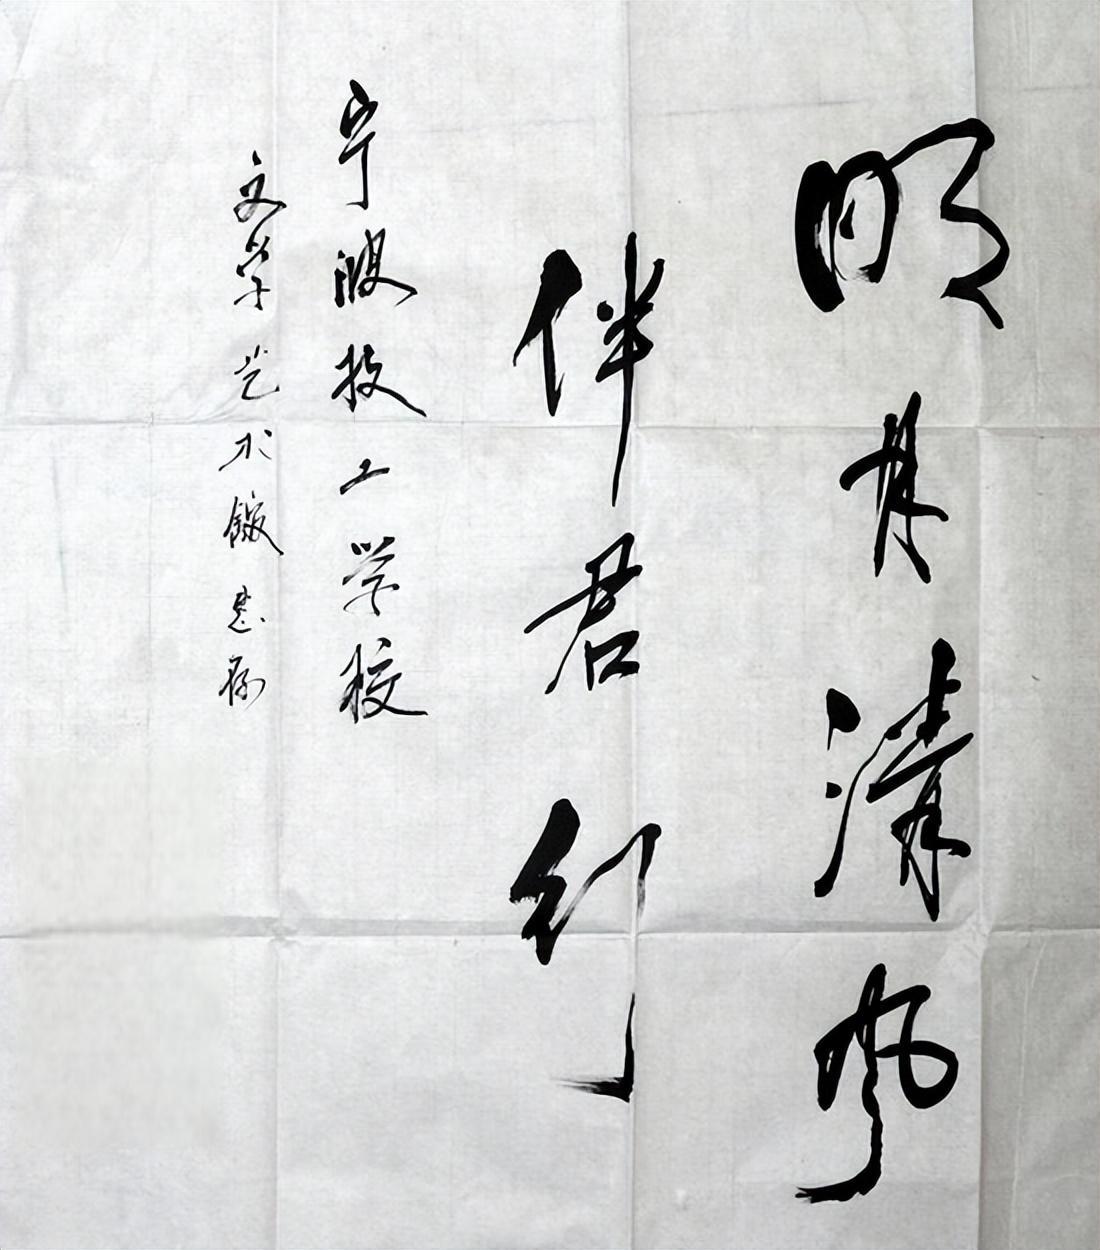 明月清风
伴君行
宁波技工学校
文学艺术馆惠存